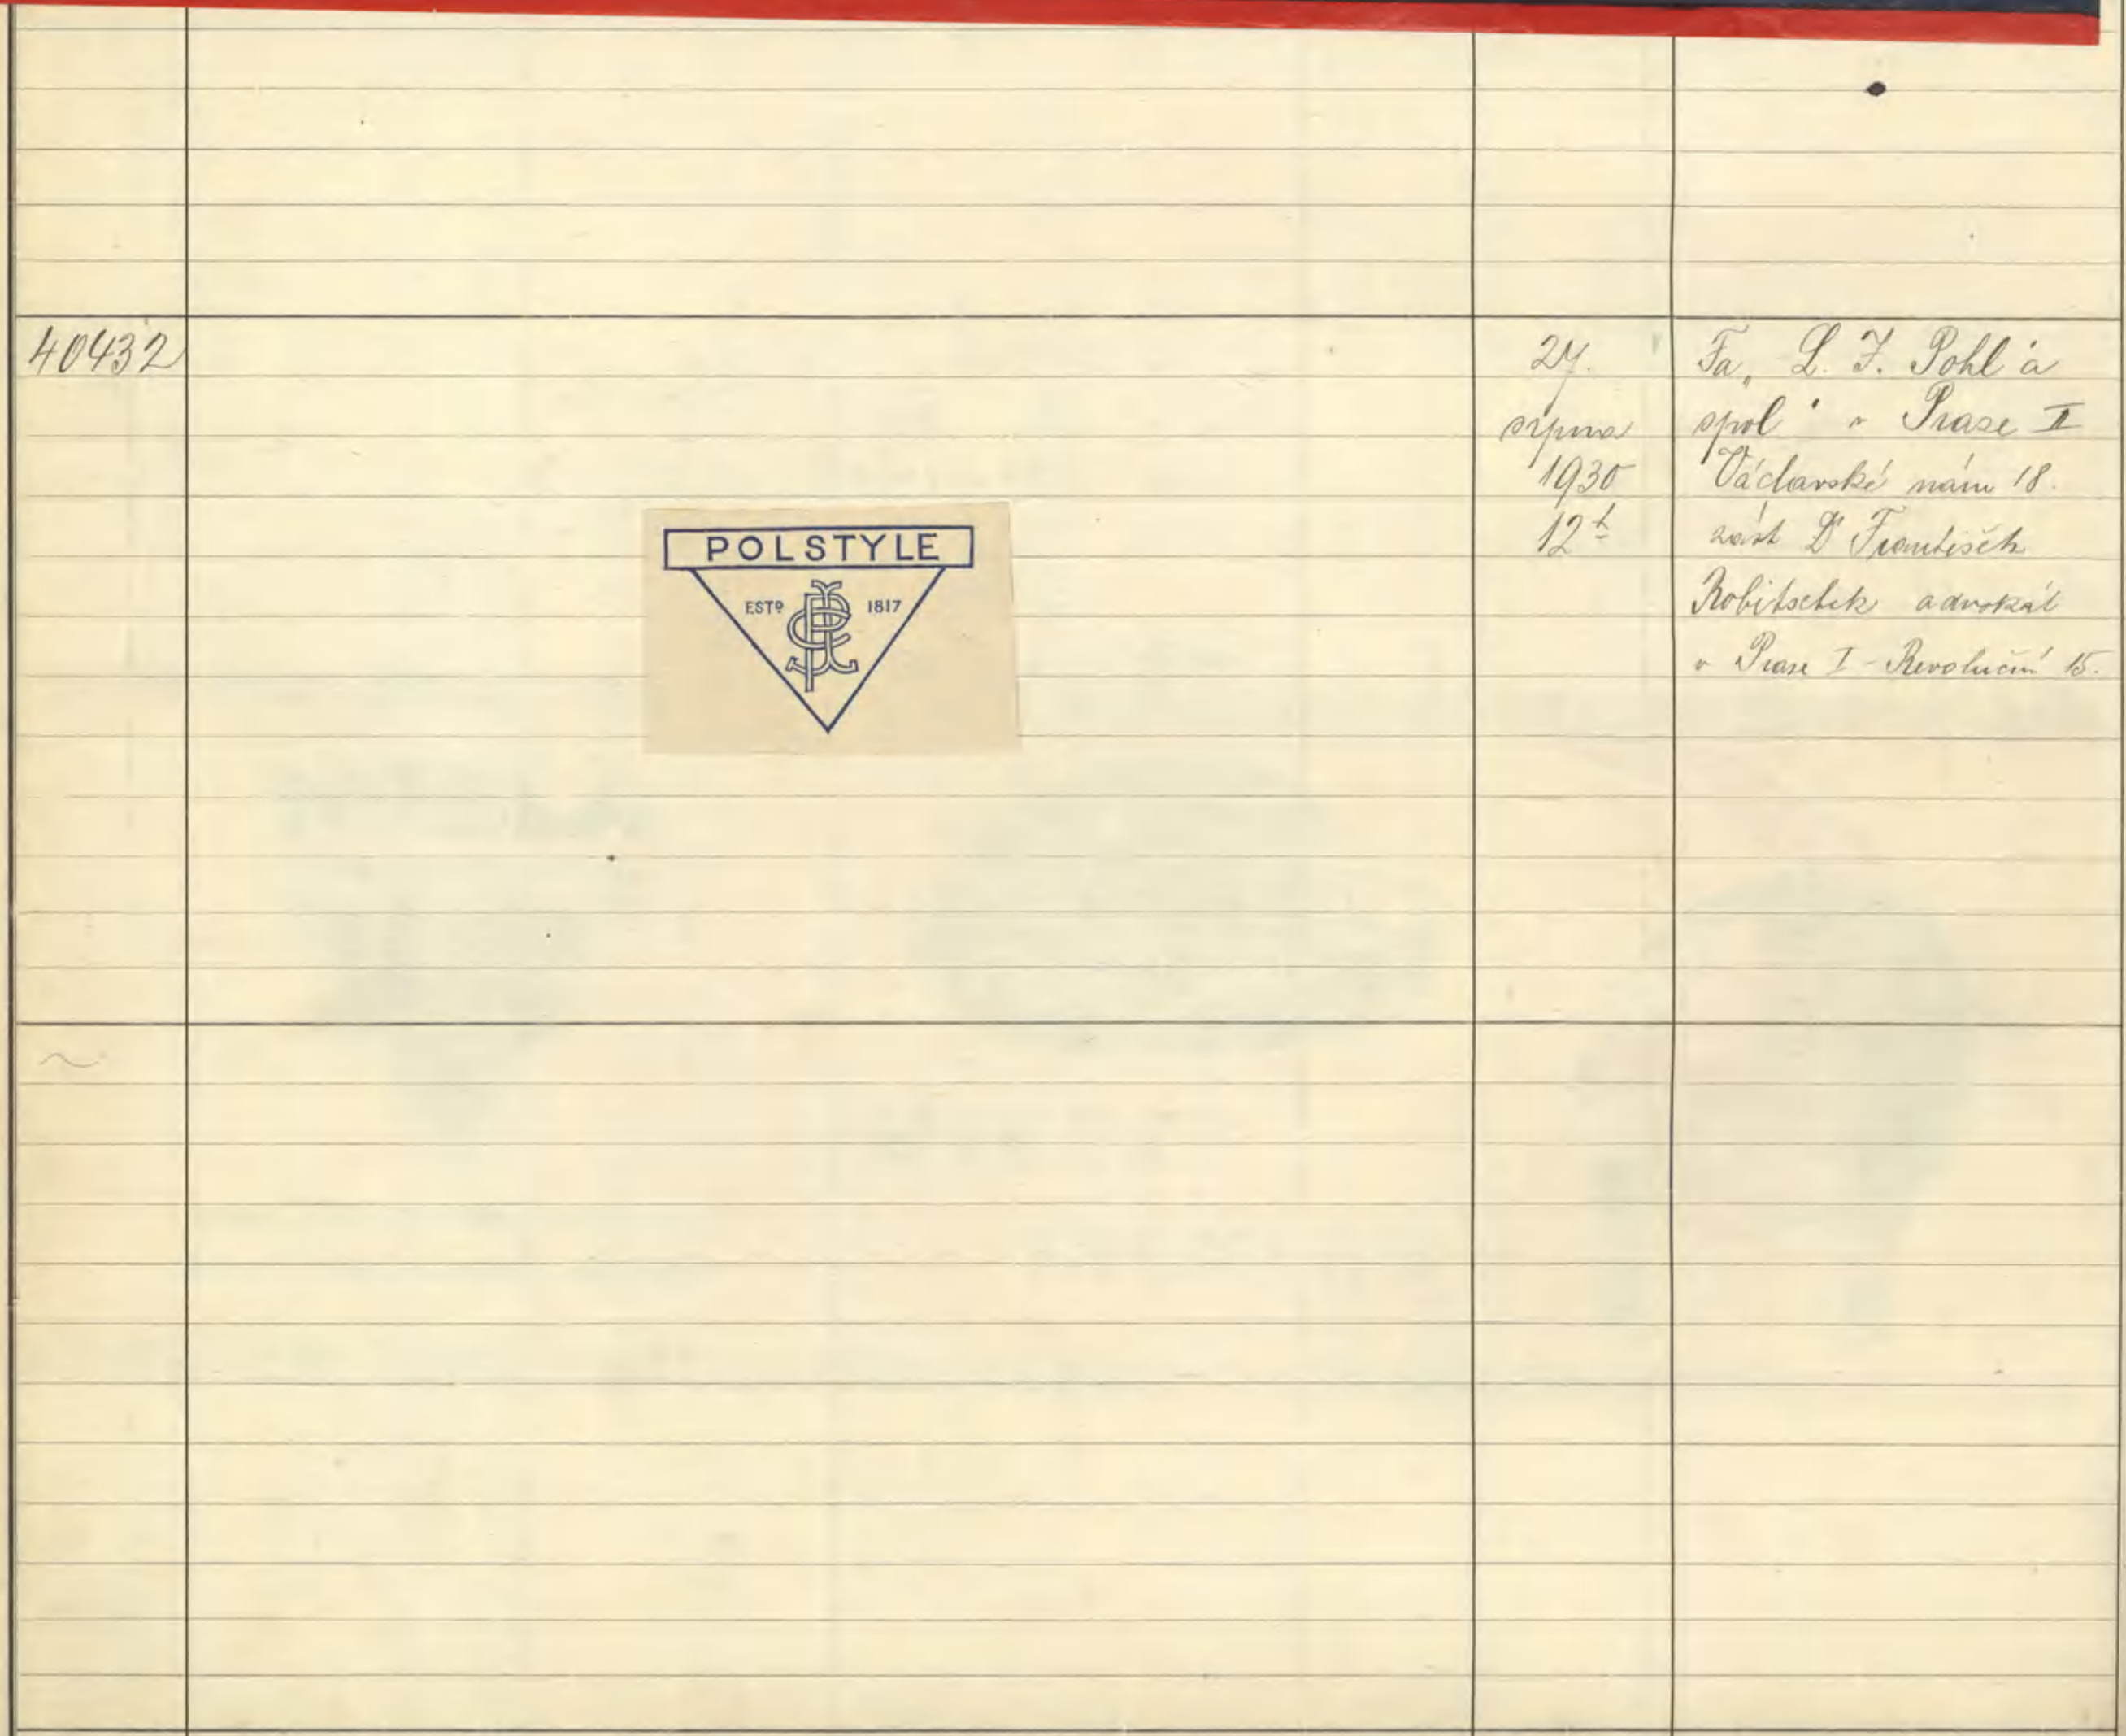 40432
POLSTYLE
ESTD 1817
27.
srpna
1930
12 h
Fa „L. J. Pohl a
spol" v Praze II
Václavské nám 18.
zást Dr František
Robitschek advokát
v Praze I - Revoluční 15.